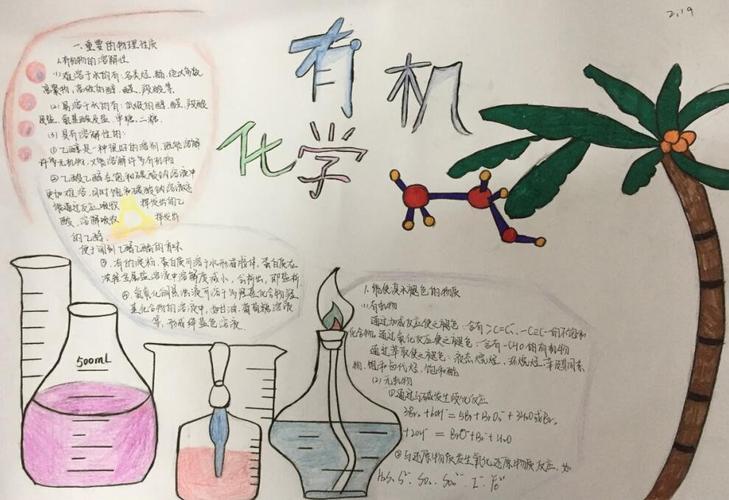 2,19
有机
化学
一.重要的物理性质
1.有机物的溶解性
(1)难溶于水的有:各类烃、酯、绝大多数
高聚物、高级的醇、醛、羧酸等
(2)易溶于水的有:低级的醇、醛、羧酸
及盐、氨基酸及盐、单糖、二糖.
(3)具有溶解性的:
①乙醇是一种很好的溶剂,既能溶解
许多无机物,又能溶解许多有机物
②乙酸乙酯在饱和碳酸钠溶液中
更加难溶,同时饱和碳酸钠溶液还
能通过反应吸收 挥发出的乙
酸,溶解吸收 挥发出
的乙醇,
便于闻到乙酸乙酯的香味
③有的淀粉、蛋白质可溶于水形成胶体,蛋白质在
浓轻金属盐溶液中溶解度减小,会析出,即盐析
④氢氧化铜悬浊液可溶于多羟基化合物
化合物的溶液中,如甘油、葡萄糖溶液
等,形成绛蓝色溶液.
500mL
1.能使溴水褪色的物质
(1)有机物
通过加成反应使之褪色:含有>C=C<,-C≡C-的不饱和
化合物.通过氧化反应使之褪色:含有-CHO的有机物
通过萃取使之褪色:液态烷烃、环烷烃、苯及其同系
物、饱和卤代烃、饱和酯
(2)无机物
①通过与碱发生歧化反应
3Br₂+6OH⁻=5Br⁻+BrO₃⁻+3H₂O或Br₂
+2OH⁻=BrO⁻+Br⁻+H₂O
②与还原物质发生氧化还原反应,如
H₂S、S²⁻、SO₂、SO₃²⁻、I⁻、Fe²⁺